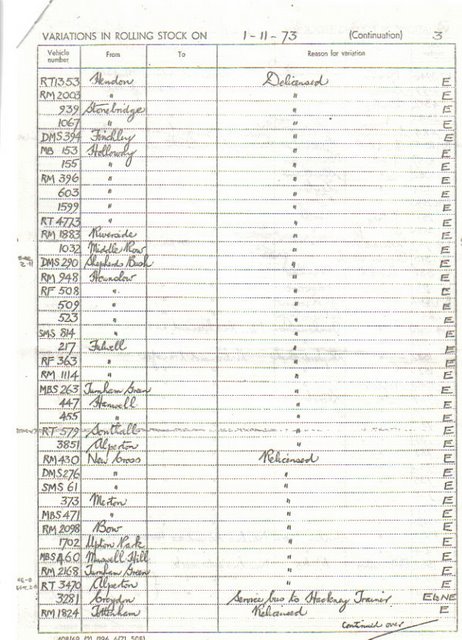 VARIATIONS IN ROLLING STOCK ON 1-11-73 (Continuation) 3
Vehicle number From To Reason for variation
RT1353 Hendon Delicensed E
RM2003 " " E
939 Stonebridge " E
1067 " " E
DMS394 Finchley " E
MB 153 Holloway " E
155 " " E
RM 396 " " E
603 " " E
1599 " " E
RT 4773 " " E
RM 1883 Riverside " E
1032 Middle Row " E
DMS290 Shepherds Bush " E
RM 948 Hounslow " E
RF 508 " " E
509 " " E
523 " " E
SMS 814 " " E
217 Fulwell " E
RF 363 " " E
RM 1114 " " E
MBS 263 Turnham Green " E
447 Hanwell " E
455 " " E
RT 579 Southall " E
3851 Alperton " E
RM430 New Cross Relicensed E
DMS276 " " E
SMS 61 " " E
373 Merton " E
MBS471 " " E
RM 2098 Bow " E
1702 Upton Park " E
MBS460 Muswell Hill " E
RM 2168 Turnham Green " E
RT 3470 Alperton " E
3281 Croydon Service bus to Hackney Trainer E to NE
RM 1824 Tottenham Relicensed E
continued over